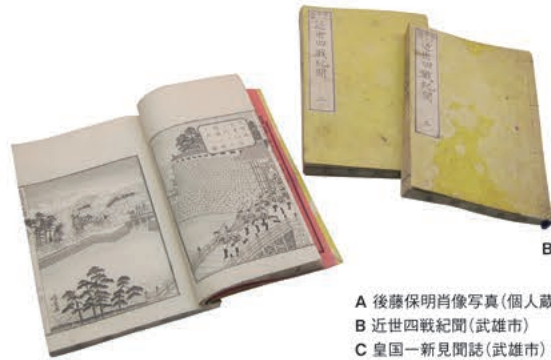 近世四戦紀聞
近世四戦紀聞
B
A 後藤保明肖像写真(個人蔵
B 近世四戦紀聞(武雄市)
C 皇国一新見聞誌(武雄市)